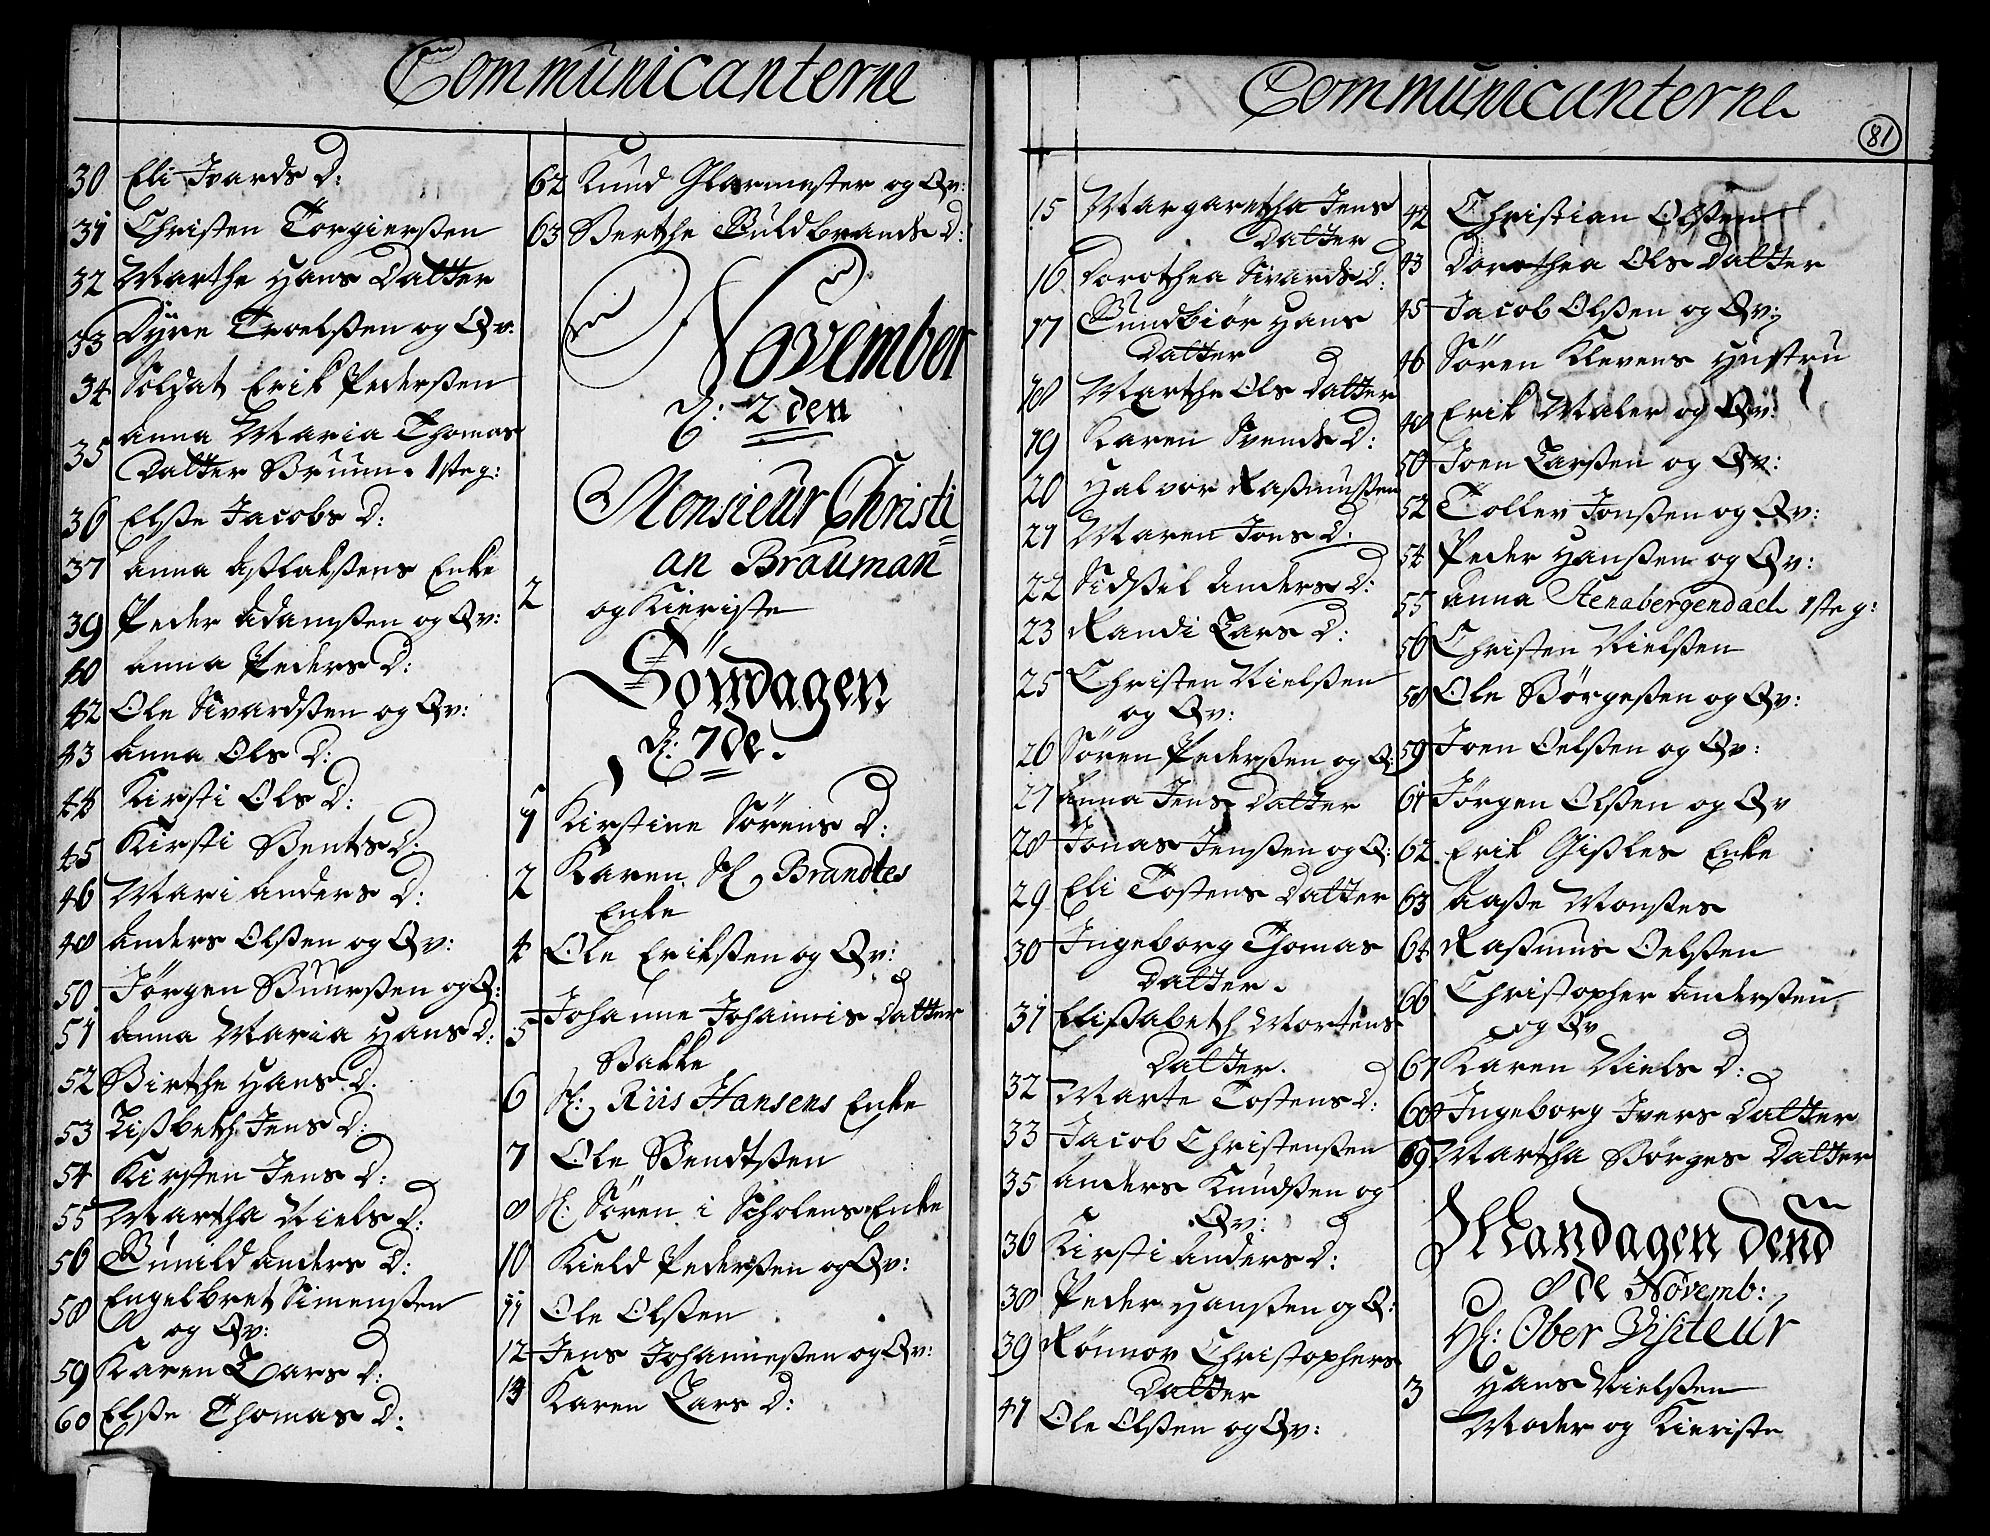 Communicanterne
30 Eli Ivards D:
31 Christen Torgiersen
32 Marthe Hans Datter
33 Dyre Troelsen og Qv:
34 Soldat Erik Pedersen
35 Anna Maria Thomas
Datter Bruun. 1ste g:
36 Else Jacobs D:
37 Anna Aslaksens Enke
39 Peder Adamsen og Qv:
40 Anna Peders D:
42 Ole Sivardsen og Qv:
43 Anna Ols D:
44 Kirsti Ols D:
45 Kirsti Bents D:
46 Mari Anders D:
48 Anders Olsen og Qv:
50 Jörgen Buursen og Q:
51 Anna Maria Hans D:
52 Birthe Hans D.
53 Lisbeth Jens D:
54 Kirsten Jens D:
55 Martha Niels D:
56 Gunild Anders D:
58 Engelbret Simensen
og Qv:
59 Karen Lars D:
60 Else Thomas D:
62 Knud Glarmester og Qv:
63 Berthe Guldbrands D:
November
D: 2den
Monsieur Christi=
an Brauman
2 og Kieriste
Söndagen
D: 7de.
1 Kirstine Sörens D:
2 Karen Sl. Brandtes
Enke
4 Ole Eriksen og Qv:
5 Johanne Johannis Datter
Bakke
6 Sl: Riis Hansens Enke
7 Ole Bendtsen
8 Sl: Sören i Scholens Enke
10 Kield Pedersen og Qv:
11 Ole Olsen
12 Jens Johannesen og Qv:
14 Karen Lars D:
Communicanterne
81
15 Margaretha Jens
Datter
16 Dorothea Sivards D:
17 Gundbiör Hans
Datter
18 Marthe Ols Datter
19 Karen Svends D:
20 Halvor Rasmussen
21 Maren Jons D:
22 Sidsel Anders D:
23 Randi Lars D:
25 Christen Nielsen
og Qv:
26 Sören Pedersen og Q:
27 Anna Jens Datter
28 Jonas Jensen og Q:
29 Eli Tostens Datter
30 Ingeborg Thomas
Datter.
31 Elisabeth Mortens
Datter.
32 Marte Tostens D:
33 Jacob Christensen
35 Anders Knudsen og
Qv:
36 Kirsti Anders D:
38 Peder Hansen og Q:
39 Rönnov Christophers
Datter
41 Ole Olsen og Qv:
42 Christian Olsen
43 Dorothea Ols Datter
45 Jacob Olsen og Qv:
46 Sören Klevens Hustru
48 Erik Maler og Qv:
50 Joen Larsen og Qv:
52 Tollev Jonsen og Qv:
54 Peder Hansen og Qv:
55 Anna Stenabergendach 1ste g:
56 Christen Nielsen
58 Ole Börgesen og Qv:
59 Joen Oelsen og Qv:
61 Jörgen Olsen og Qv
62 Erik Gisles Enke
63 Aase Monses
64 Rasmus Oelsen
66 Christopher Andersen
og Qv
67 Karen Niels D:
68 Ingeborg Ivers Datter
69 Martha Börges Datter
Mandagen dend
8de Novemb:
Hl: Ober Visiteur
3 Hans Nielsen
Moder og Kieriste